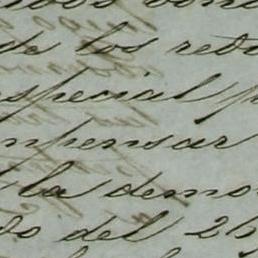 de los reto
special p
mpensar
la demo
do del 25